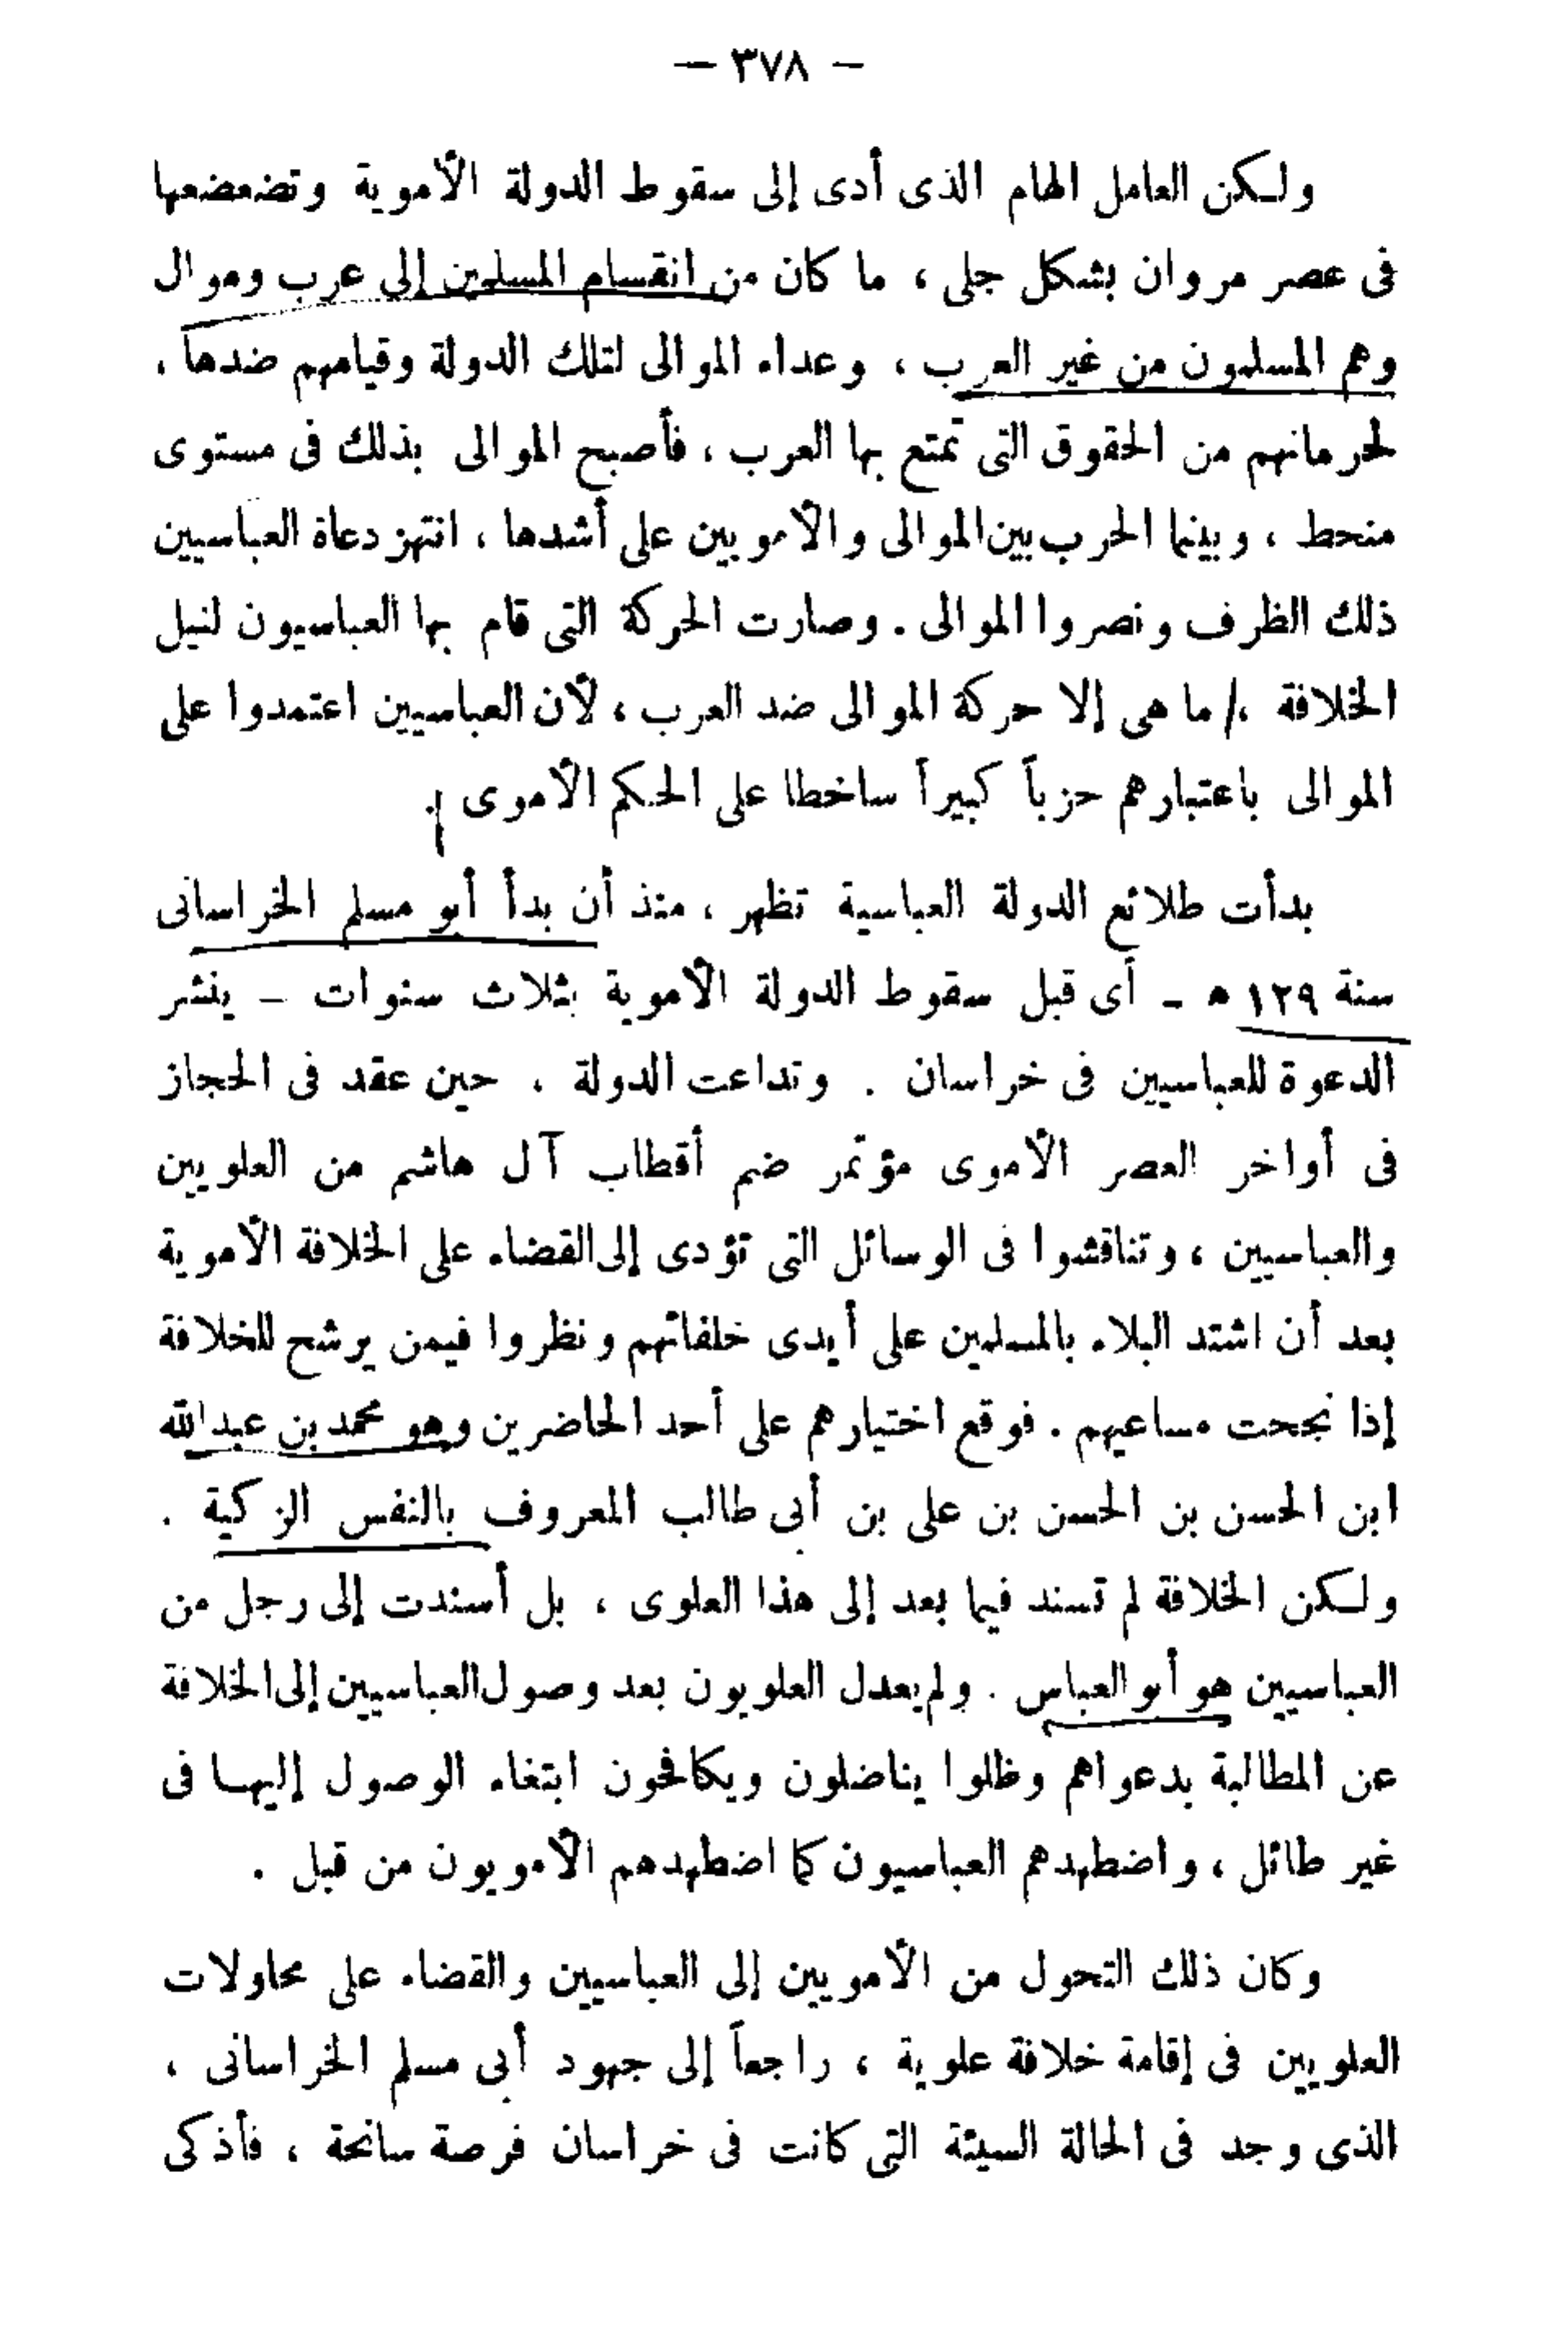 — ٣٧٨ —
ولكن العامل الهام الذى أدى إلى سقوط الدولة الأموية وتضعضعها
فى عصر مروان بشكل جلى ، ما كان من انقسام المسلمين إلى عرب وموال
وهم المسلمون من غير العرب ، وعداء الموالى لتلك الدولة وقيامهم ضدها ،
لحرمانهم من الحقوق التى تمتع بها العرب ، فأصبح الموالى بذلك فى مستوى
منحط ، وبينما الحرب بين الموالى والأمويين على أشدها ، انتهز دعاة العباسيين
ذلك الظرف ونصروا الموالى . وصارت الحركة التى قام بها العباسيون لنيل
الخلافة ، ما هى إلا حركة الموالى ضد العرب ، لأن العباسيين اعتمدوا على
الموالى باعتبارهم حزباً كبيراً ساخطا على الحكم الأموى .
بدأت طلائع الدولة العباسية تظهر ، منذ أن بدأ أبو مسلم الخراسانى
سنة ١٢٩ ه - أى قبل سقوط الدولة الأموية بثلاث سنوات - ينشر
الدعوة للعباسيين فى خراسان . وتداعت الدولة . حين عقد فى الحجاز
فى أواخر العصر الأموى مؤتمر ضم أقطاب آل هاشم من العلويين
والعباسيين ، وتناقشوا فى الوسائل التى تؤدى إلى القضاء على الخلافة الأموية
بعد أن اشتد البلاء بالمسلمين على أيدى خلفائهم ونظروا فيمن يرشح للخلافة
إذا نجحت مساعيهم . فوقع اختيارهم على أحد الحاضرين وهو محمد بن عبد الله
ابن الحسن بن الحسن بن على بن أبى طالب المعروف بالنفس الزكية .
ولكن الخلافة لم تسند فيما بعد إلى هذا العلوى ، بل أسندت إلى رجل من
العباسيين هو أبو العباس . ولم يعدل العلويون بعد وصول العباسيين إلى الخلافة
عن المطالبة بدعواهم وظلوا يناضلون ويكافحون ابتغاء الوصول إليها فى
غير طائل ، واضطهدهم العباسيون كما اضطهدهم الأمويون من قبل .
وكان ذلك التحول من الأمويين إلى العباسيين والقضاء على محاولات
العلويين فى إقامة خلافة علوية ، راجعاً إلى جهود أبى مسلم الخراسانى ،
الذى وجد فى الحالة السيئة التى كانت فى خراسان فرصة سانحة ، فأذكى